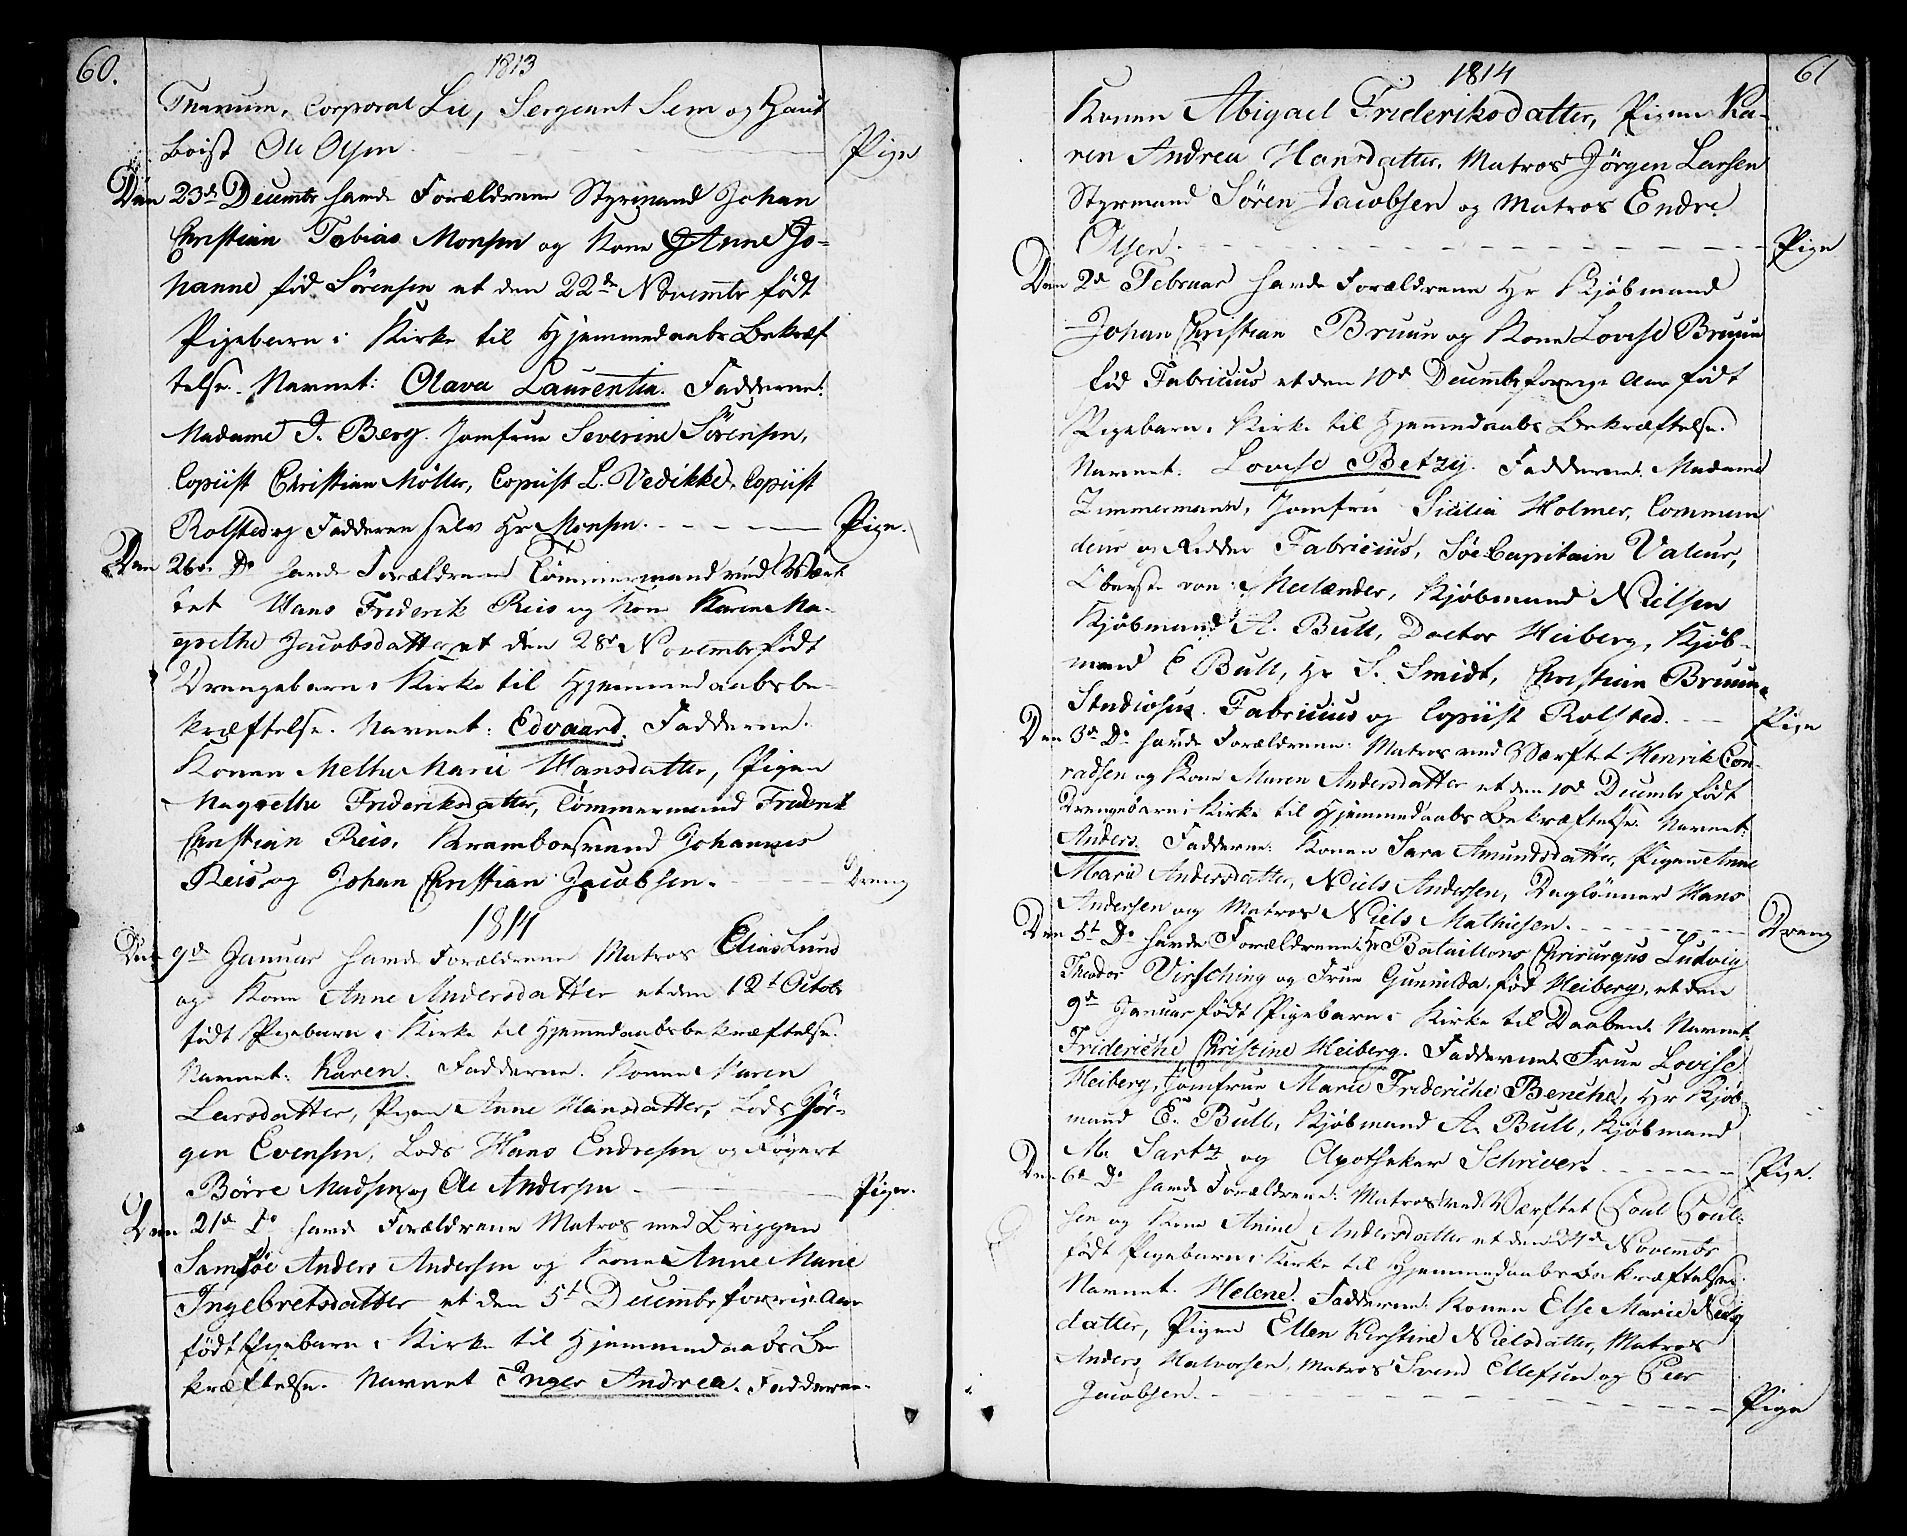 60.
1813
Tharum, Corporal Lie, Sergeant Sem og Haut
boist Ole Olsen. Pige
Den 23de Decembr havde Forældrene Styrmand Johan
Christian Tobias Monsen og Kone Anne Jo-
hanne fød Sörensen et den 22de Novembr født
Pigebarn i Kirke til Hjemmedaabs Bekræf
telse. Navnet: Olava Laurentia. Fadderne:
Madame J. Berg. Jomfrue Severine Sörensen,
Copiist Christian Möller, Copiist L. Vedikke, Copiist
Rolsted og Fadderen selv Hr Monsen. Pige.
Den 26de Do havde Forældrene Tömmermand ved Værf
tet Hans Friderik Reis og Kone Karen Ma-
grethe Jacobsdatter et den 28de Novembr født
Drengebarn i Kirke til Hjemmedaabsbe-
kræftelse. Navnet: Edvaard. Fadderne.
Konen Methe Marie Hansdatter, Pigen
Magrethe Frideriksdatter, Tömmermand Friderik
Christian Reis, Kramboesvend Johannes
Reis og Johan Christian Jacobsen. Dreng
1814
Den 9de Januar havde Forældrene Matros Elias Lund
og Kone Anne Andersdatter et den 12t Octobr
født Pigebarn i Kirke til Hjemmedaabsbekræftelse.
Navnet: Karen. Fadderne. Konen Maren
Larsdatter, Pigen Anne Hansdatter, Lods Jör-
gen Evensen, Lods Hans Endresen og
Börre Madsen og Ole Andersen Pige.
Den 21de Do havde Forældrene Matros med Briggen
Samsöe Anders Andersen og Kone Anne Marie
Ingebretsdatter et den 5t Decembr forrige Aar
født Pigebarn i Kirke til Hjemmedaabs Be
kræftelse. Navnet Inger Andrea. Fadderne.
61
1814
Konen Abigael Frideriksdatter, Pigen Ka-
ren Andrea Hansdatter. Matros Jörgen Larsen
Styrmand Sören Jacobsen og Matros Endre
Olsen. Pige
Den 2de Februar havde Forældrene Hr Kjöbmand
Johan Christian Bruun og Kone Lovise Bruun
fød Fabricius et den 10de Decembr forrige Aar født
Pigebarn i Kirke til Hjemmedaabs Bekræftelse.
Navnet: Lovise Betzy. Fadderne. Madame
Zimmermann, Jomfru Sicilia Holmer, Commen
deur og Ridder Fabricius, Söe Capitain Valeur,
Oberste von Meelænder, Kjöbmand Nielsen
Kjöbmand A. Bull, Doctor Heiberg, Kjöb-
mand E Bull, Hr S. Smidt, Christian Bruun
Studiosus Fabricius og Copiist Rolsted. Pige
Den 3de Do havde Forældrene. Matros ved Værftet Henrik Con-
radsen og Kone Maren Andersdatter et den 10de Decembr født
Drengebarn i Kirke til Hjemmedaabs Bekræftelse. Navnet:
Anders. Fadderne: Konen Sara Amundsdatter, Pigen Anne
Marie Andersdatter, Niels Andersen, Daglönner Hans
Andersen og Matros Niels Mathiesen. Dreng
Den 5t Do havde Forældrene Hr Bataillons Chirurgus Ludvig
Theodor Virsching og Frue Gunnilda fød Heiberg, et den
9de Januar født Pigebarn i Kirke til Daaben. Navnet
Frideriche Christine Heiberg. Fadderne Frue Lovise
Heiberg, Jomfrue Marie Frideriche Benche, Hr Kjöb-
mand E. Bull, Kjöbmand A. Bull, Kjöbmand
M. Sartz og Apotheker Schriver. Pige.
Den 6te Do havde Forældrene. Matros ved Værftet Poul Poul-
sen og Kone Anine Andersdatter et den 24de Novembr
født Pigebarn i Kirke til Hjemmedaabs Bekræftelse.
Navnet. Helene. Fadderne. Konen Else Marie Niels
datter, Pigen Ellen Kirstine Nielsdatter, Matros
Anders Halvorsen, Matros Svend Ellefsen og Peer
Jacobsen. Pige